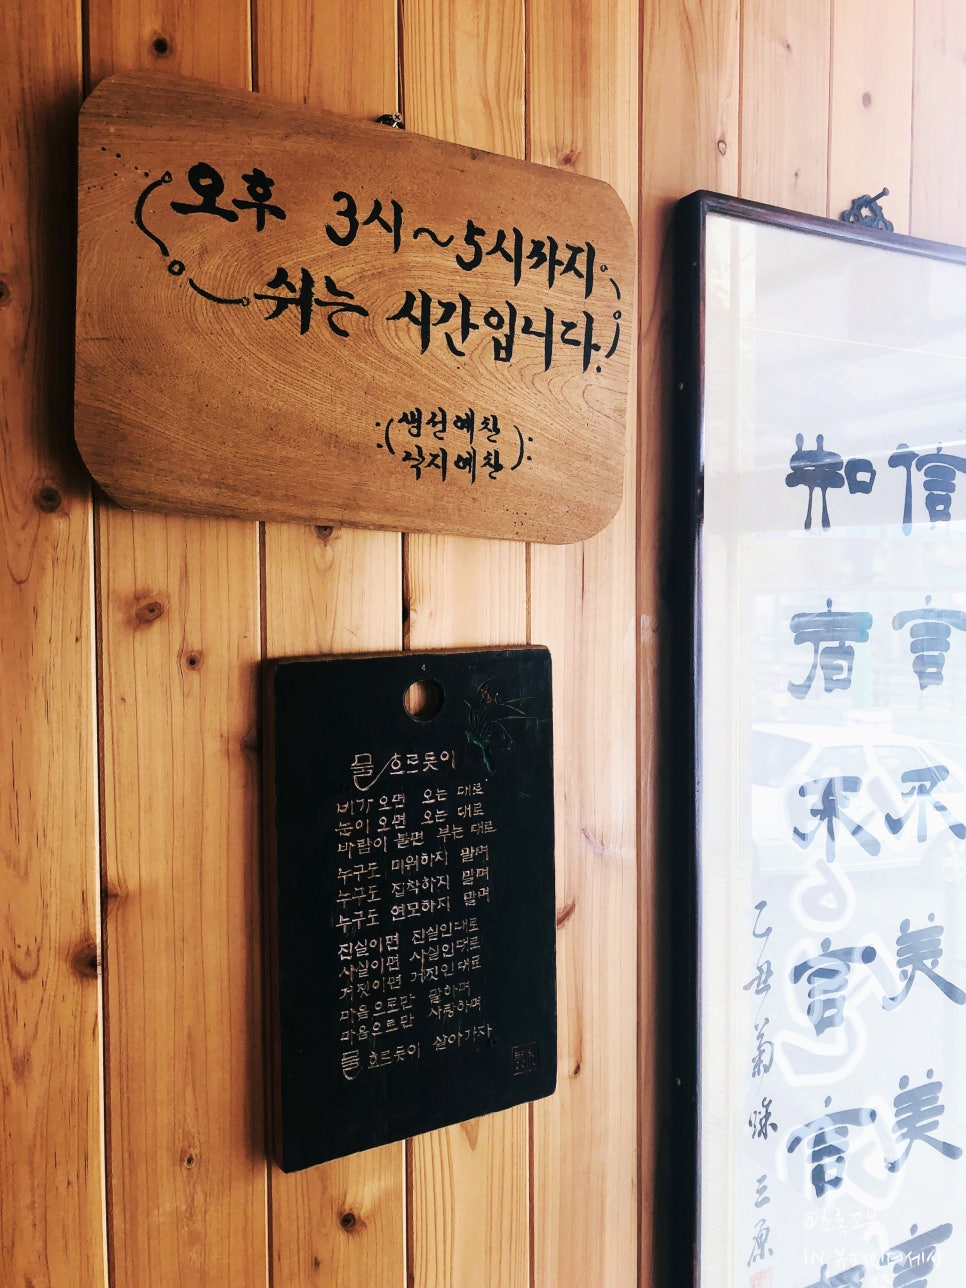 오후 3시~5시까지
쉬는 시간입니다.
(생선예찬
낙지예찬)
물 흐르듯이
비가 오면 오는 대로
눈이 오면 오는 대로
바람이 불면 부는 대로
누구도 미워하지 말며
누구도 집착하지 말며
누구도 연모하지 말며
진실이면 진실인대로
사실이면 사실인대로
거짓이면 거짓인대로
마음으로만 말하며
마음으로만 사랑하며
물 흐르듯이 살아가자
信言不美美言
知者不言言
乙丑菊秌 三原
@초록꼬브